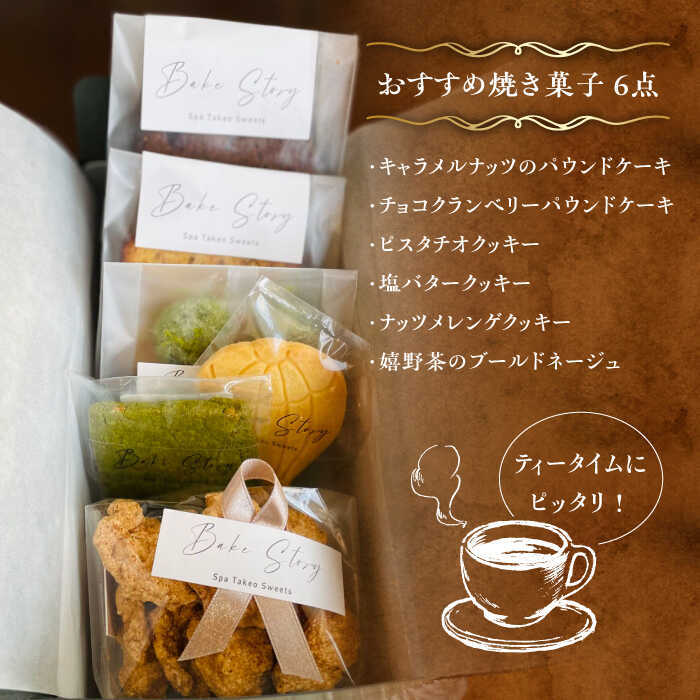 おすすめ焼き菓子 6点
・キャラメルナッツのパウンドケーキ
・チョコクランベリーパウンドケーキ
・ピスタチオクッキー
・塩バタークッキー
・ナッツメレンゲクッキー
・嬉野茶のブールドネージュ
ティータイムに
ピッタリ！
Bake Story
Spa Takeo Sweets
Bake Story
Spa Takeo Sweets
Bake Story
Bake Story
Spa Takeo Sweets